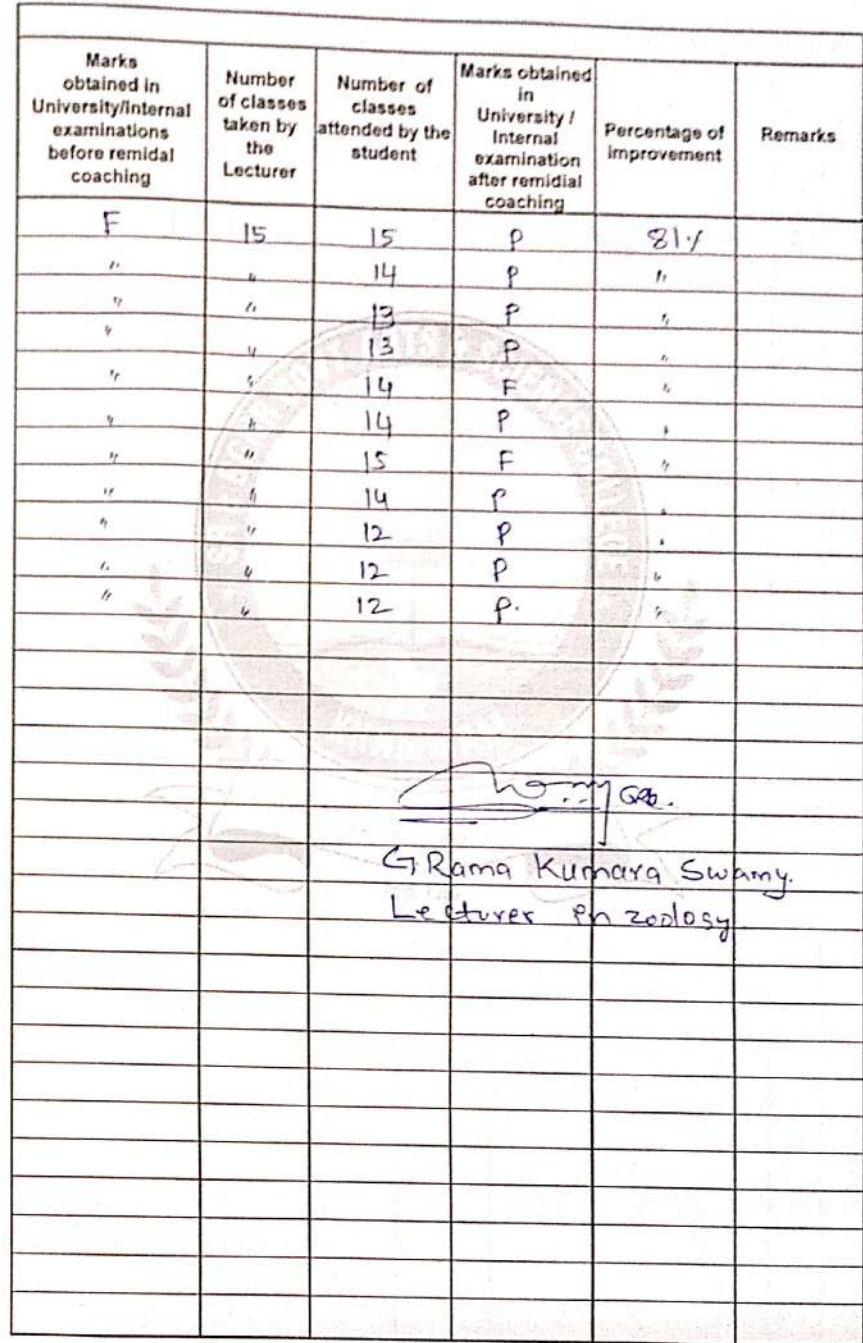 Marks obtained in University/Internal examinations before remidal coaching | Number of classes taken by the Lecturer | Number of classes attended by the student | Marks obtained in University / Internal examination after remidial coaching | Percentage of improvement | Remarks
F 15 15 P 81%
" " 14 P "
" " 13 P "
" " 13 P "
" " 14 F "
" " 14 P "
" " 15 F "
" " 14 P "
" " 12 P "
" " 12 P "
" " 12 P. "
G Rama Kumara Swamy.
Lecturer in zoology